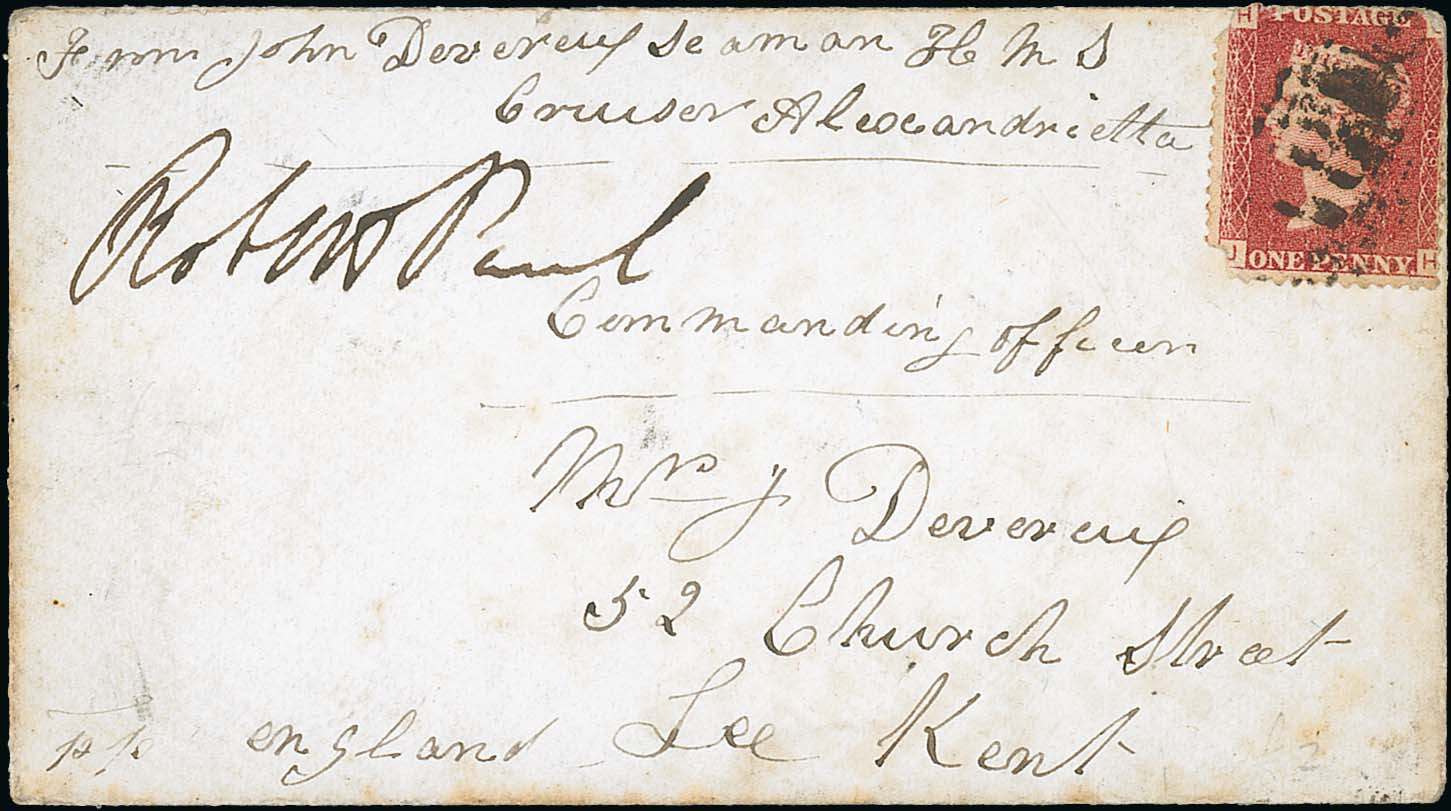 From John Devereux Seaman H M S
Cruiser Alexandrietta
Robt W Paul
Commanding officer
Mrs J Devereux
52 Church Street
Lee Kent
england
H POSTAGE
J ONE PENNY H